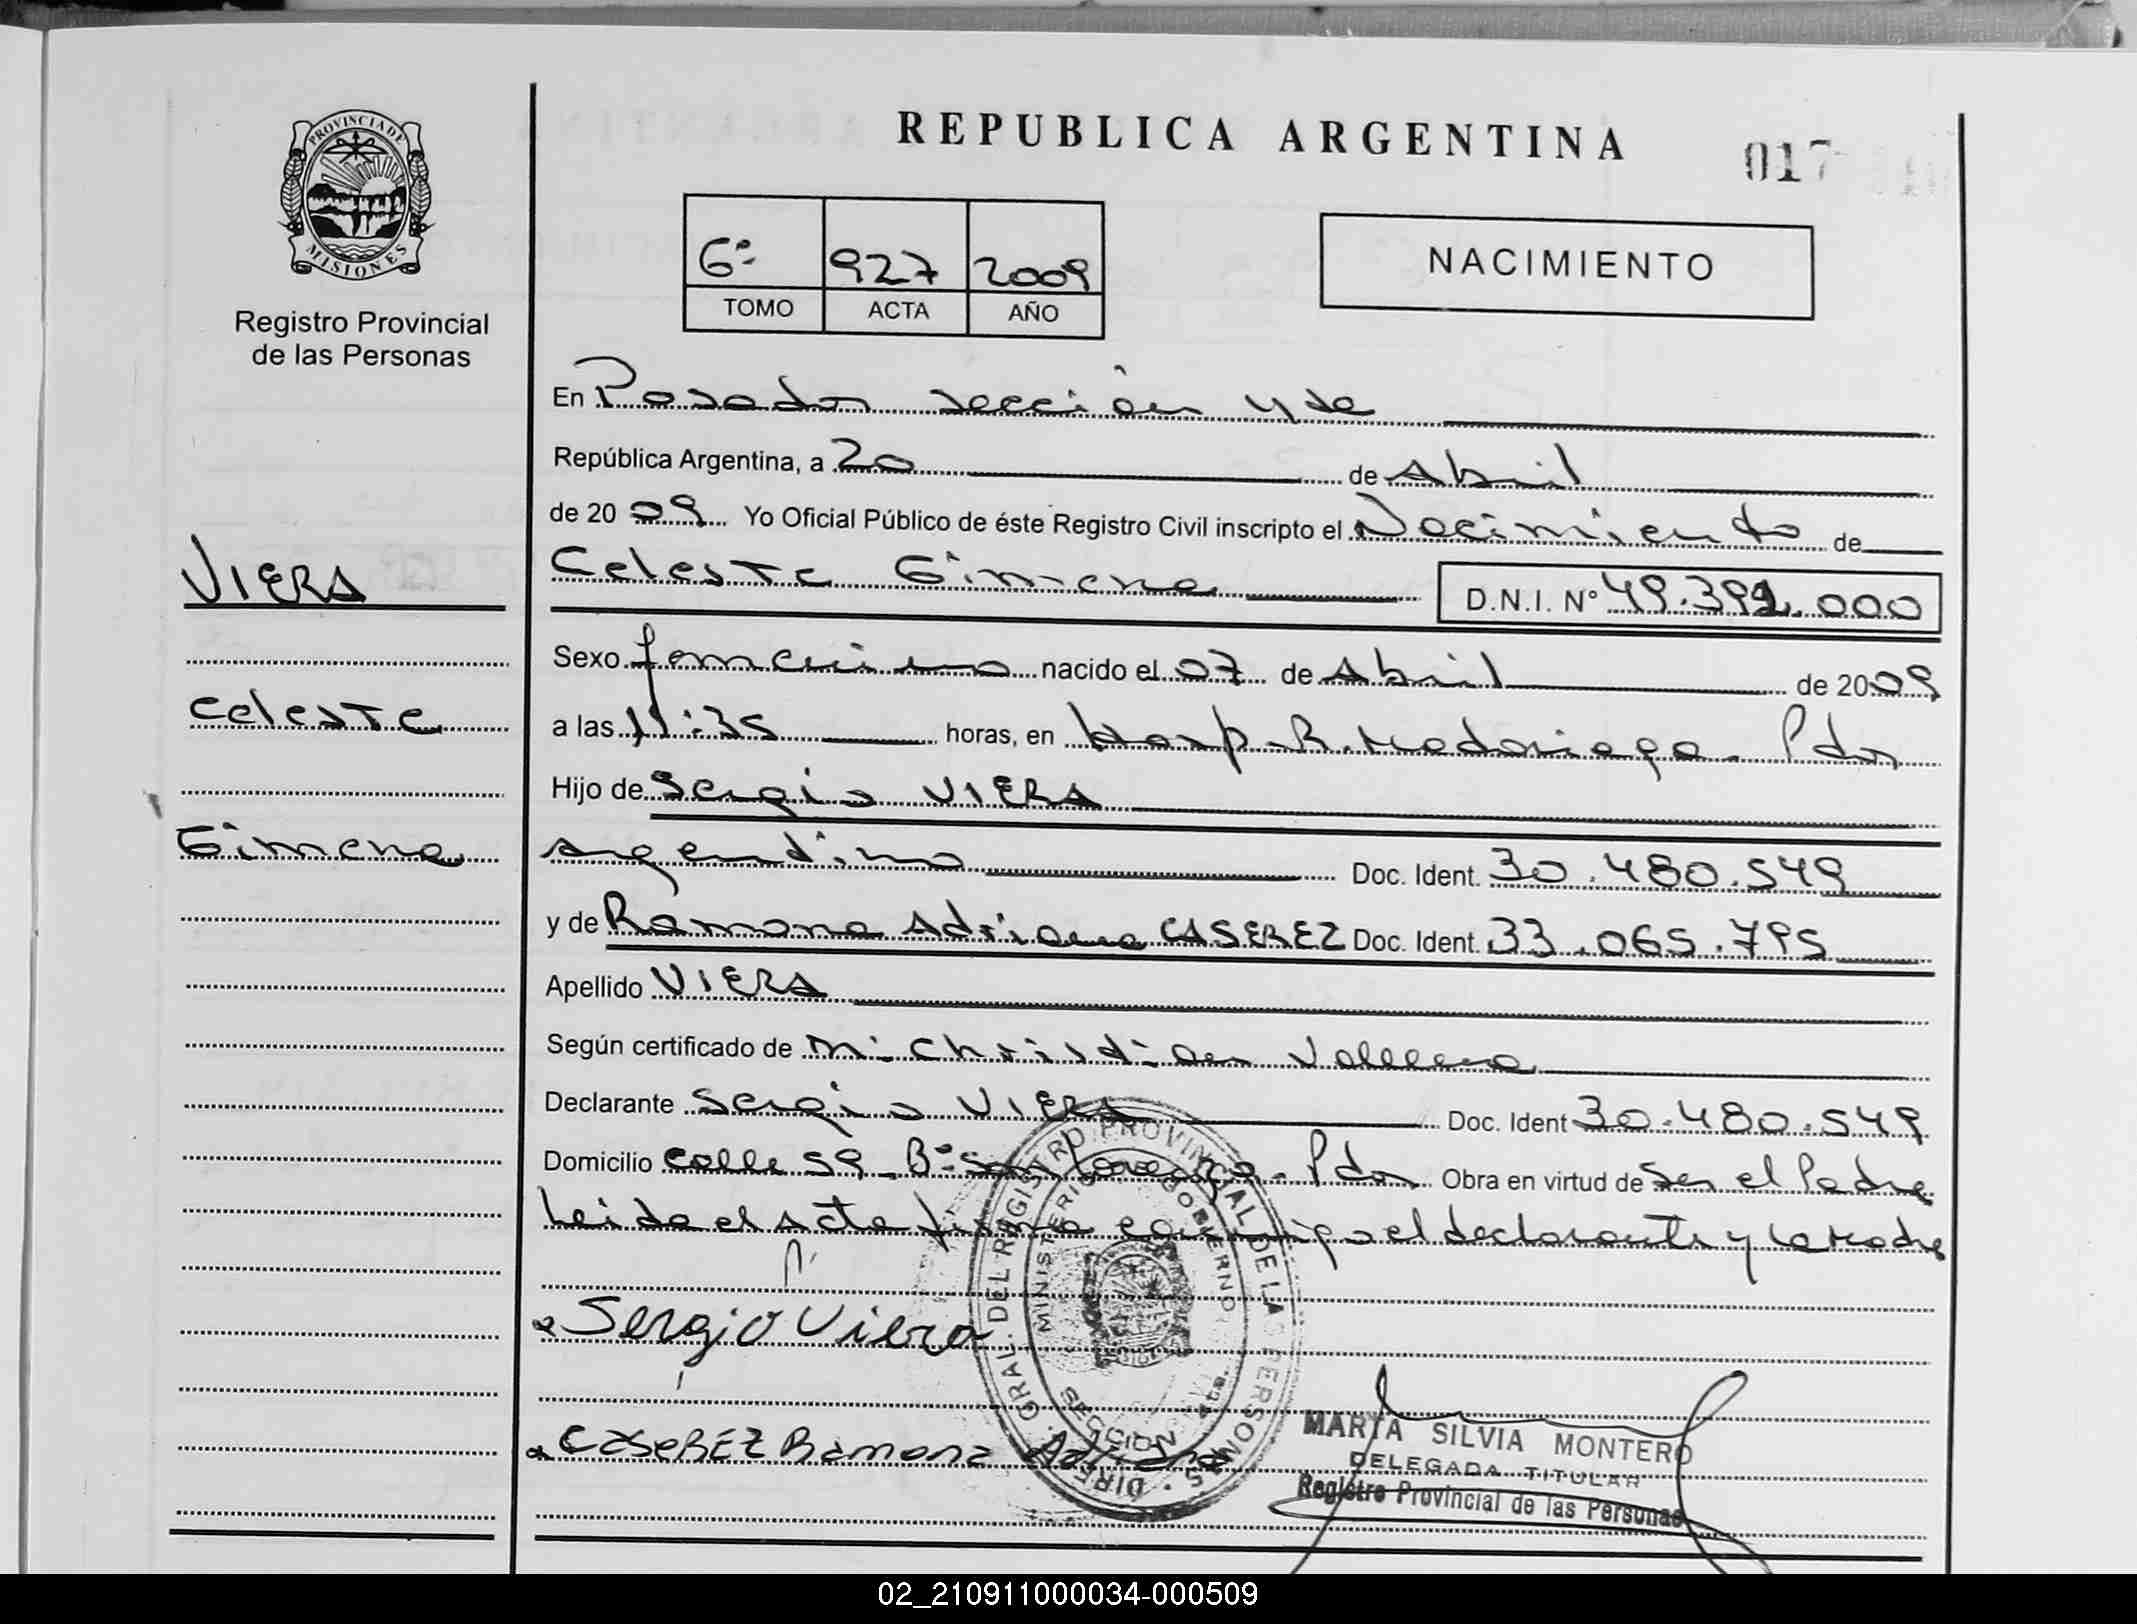 REPUBLICA ARGENTINA
017
PROVINCIA DE
MISIONES
Registro Provincial
de las Personas
6º 927 2009
TOMO ACTA AÑO
NACIMIENTO
En Posadas sección 4ta
República Argentina, a 20 de Abril
de 2009 Yo Oficial Público de éste Registro Civil inscripto el Nacimiento de
VIERA
Celeste
Gimena
Celeste Gimena D.N.I. Nº 49.392.000
Sexo femenino nacido el 07 de Abril de 2009
a las 11:35 horas, en Hosp. R. Madariaga - Pdas
Hijo de Sergio VIERA
Argentino Doc. Ident. 30.480.549
y de Ramona Adriana CASEREZ Doc. Ident. 33.065.795
Apellido VIERA
Según certificado de Christian
Declarante Sergio VIERA Doc. Ident 30.480.549
Domicilio Calle 59 - Bº San Lorenzo - Pdas Obra en virtud de Ser el Padre
Leida el Acta firma conmigo el declarante y la Madre
Sergio Viera
CASEREZ Ramona Adriana
DIREC. GRAL. DEL REGISTRO PROVINCIAL DE LAS PERSONAS
MINISTERIO GOBIERNO
SECCION 4ta.
MARTA SILVIA MONTERO
DELEGADA TITULAR
Registro Provincial de las Personas
02_210911000034-000509